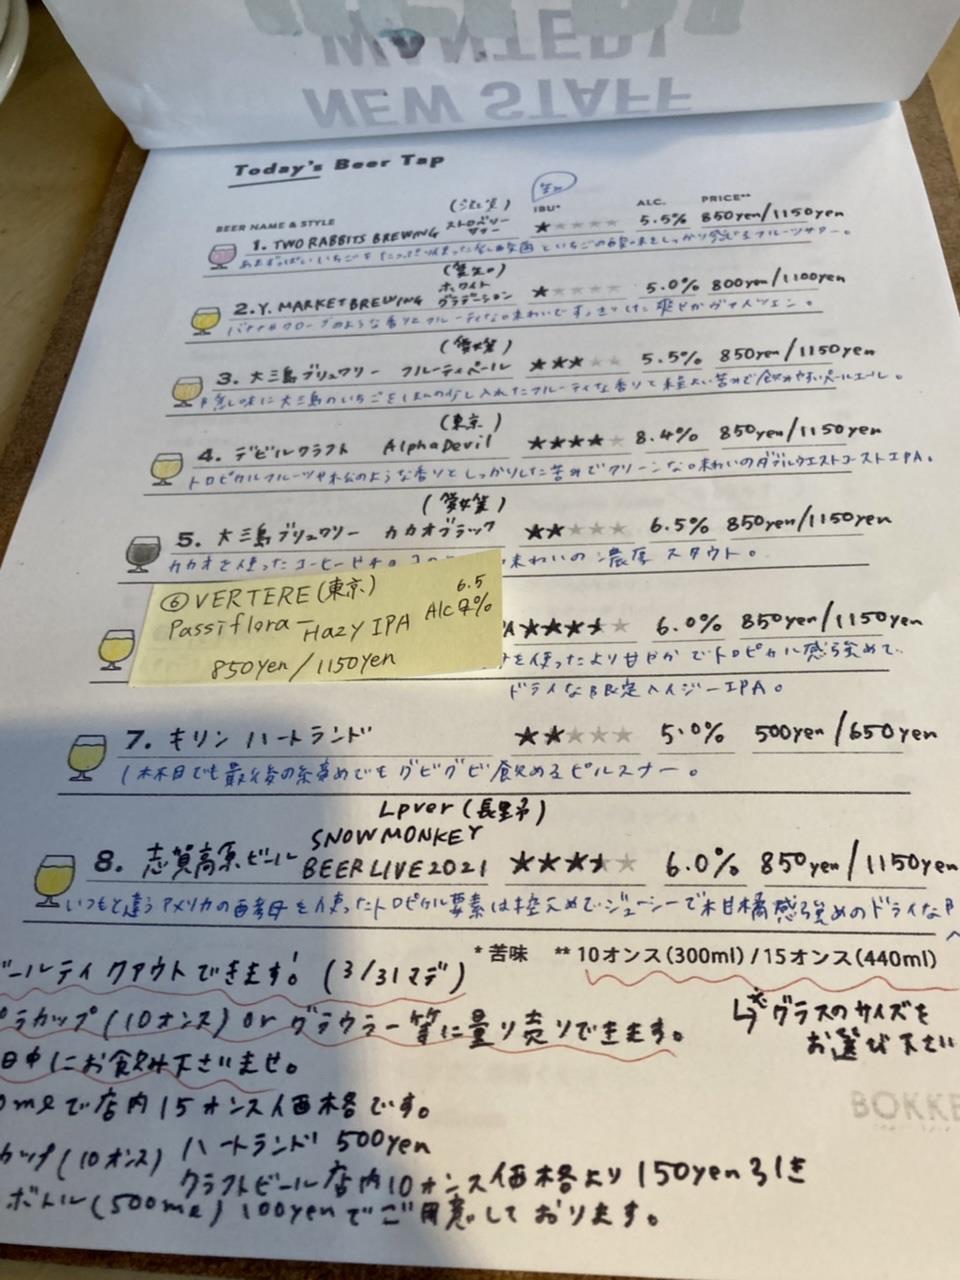 NEW STAFF
WANTED!
Today's Beer Tap
BEER NAME & STYLE IBU* ALC. PRICE**
苦み
(滋賀) ストロベリーサワー
1. TWO RABBITS BREWING ★★★★★ 5.5% 850yen/1150yen
(愛知) ホワイトグラデーション
2. Y. MARKET BREWING ★★★★★ 5.0% 800yen/1100yen
バナナやクローブのような香りとフルーティな味わいですっきりした爽やかヴァイツェン。
(愛媛)
3. 大三島ブリュワリー フルーティペール ★★★★★ 5.5% 850yen/1150yen
隠し味に大三島のいちごをほんの少し入れたフルーティな香りと程よい苦みで飲みやすいペールエール。
(東京)
4. デビルクラフト AlphaDevil ★★★★★ 8.4% 850yen/1150yen
トロピカルフルーツや松のような香りとしっかりした苦みでクリーンな味わいのダブルウエストコーストIPA。
(愛媛)
5. 大三島ブリュワリー カカオブラック ★★★★★ 6.5% 850yen/1150yen
カカオを使ったコーヒーやチョコ 味わいの濃厚スタウト。
⑥VERTERE(東京) 6.5
Passiflora-Hazy IPA Alc %
850yen/1150yen
★★★★★ 6.0% 850yen/1150yen
を使ったより甘やかでトロピカル感強めで
ドライな限定ヘイジーIPA。
7. キリン ハートランド ★★★★★ 5.0% 500yen/650yen
1杯目でも最後の〆でもグビグビ飲めるピルスナー。
Lpver(長野)
SNOW MONKEY
8. 志賀高原ビール BEER LIVE 2021 ★★★★★ 6.0% 850yen/1150yen
いつもと違うアメリカの酵母を使ったトロピカル要素は控えめでジューシーで柑橘感強めのドライな
* 苦味 ** 10オンス(300ml)/15オンス(440ml)
ビールテイクアウトできます!(3/31マデ)
プラカップ(10オンス)orグラウラー等に量り売りできます。
↳※グラスのサイズを
お選び下さい
日中にお飲み下さいませ。
mlで店内15オンス価格です。
BOKKE
カップ(10オンス) ハートランド 500yen
クラフトビール 店内10オンス価格より150yen引き
ボトル(500ml) 100yenでご用意しております。